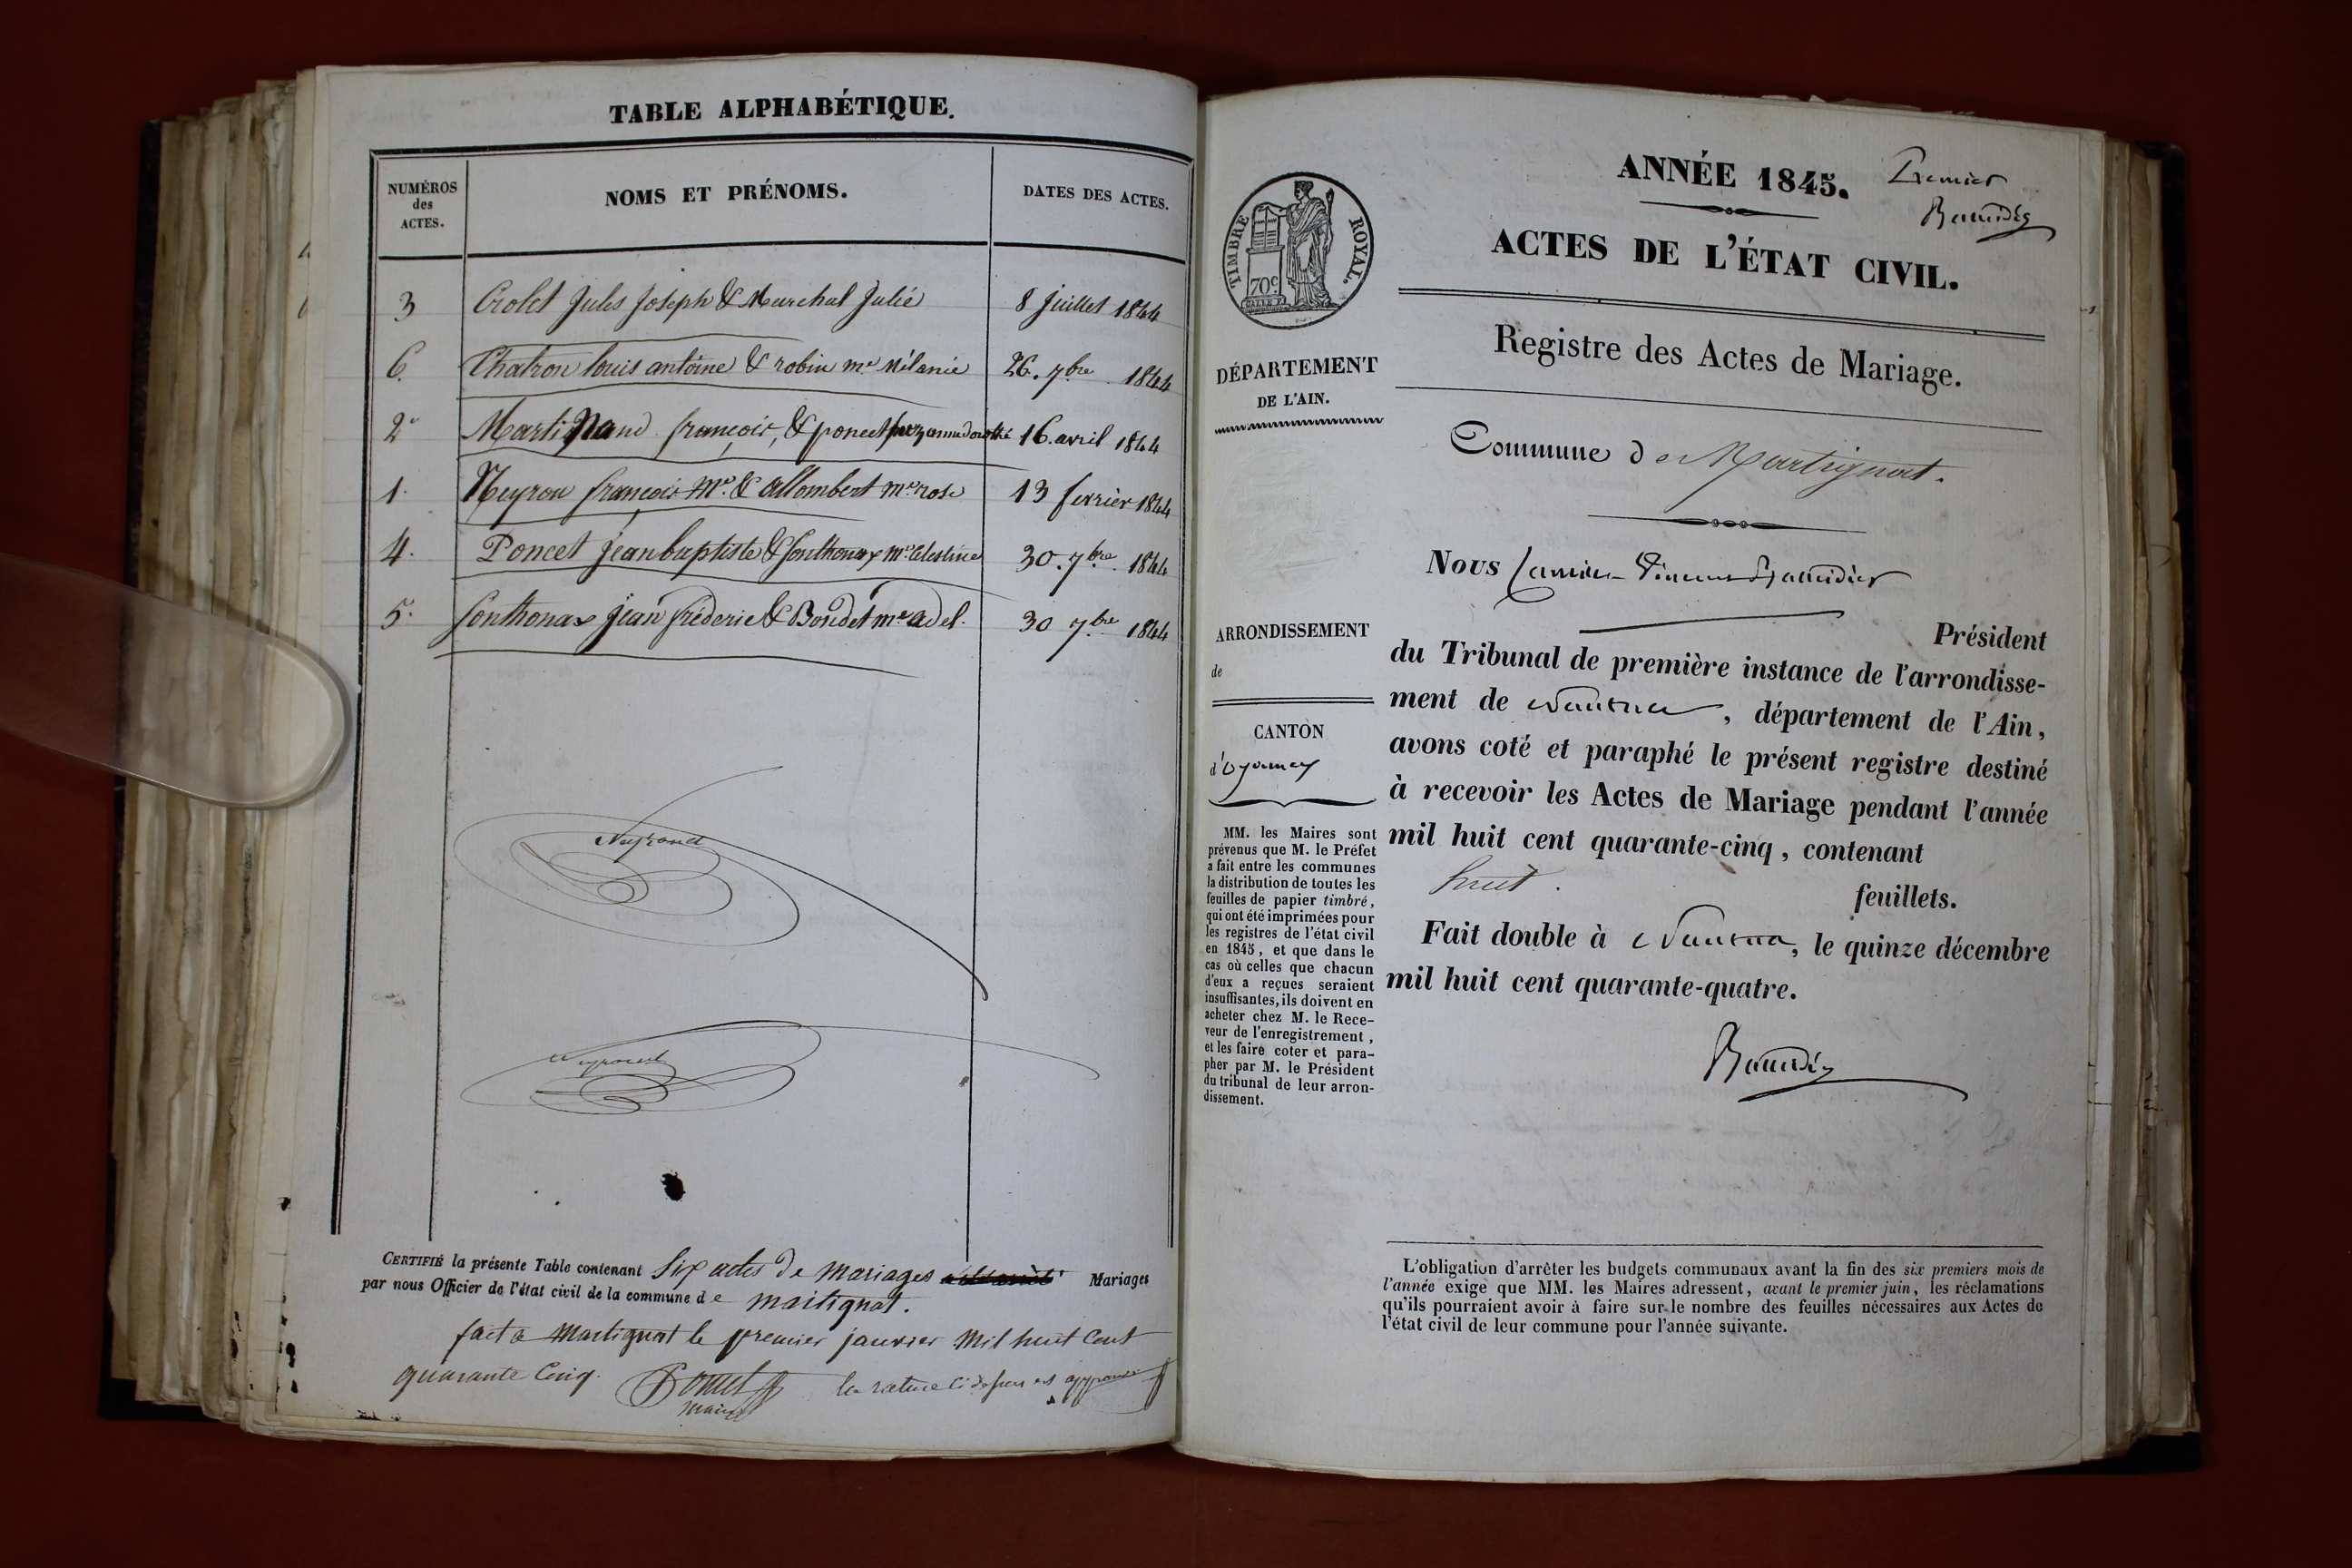 TABLE ALPHABÉTIQUE.
NUMÉROS des ACTES. NOMS ET PRÉNOMS. DATES DES ACTES.
3 Crolet Jules Joseph & Marechal Julie 8 juillet 1844
6. Chatron louis antoine & robin me Mélanie 26. 7bre 1844
2 Martinand françois, & poncet 16 avril 1844
1. Neyron françois Me. & allombert me rose 13 fevrier 1844
4. Poncet jean baptiste & Sonthonax me. Celestine 30. 7bre. 1844
5. Sonthonax jean frédéric & Bondet me adel. 30 7bre 1844
Neyroud
Neyroud
CERTIFIÉ la présente Table contenant Six actes de Mariages Mariages
par nous Officier de l'état civil de la commune de martignat.
fait a Martignat le premier janvier Mil huit Cent
quarante Cinq. Poncet la rature ci dessus est approuvée
maire
ANNÉE 1845. Premier
ACTES DE L'ÉTAT CIVIL.
TIMBRE ROYAL.
70c
Registre des Actes de Mariage.
DÉPARTEMENT
DE L'AIN.
Commune de Martignat.
Nous
Président
ARRONDISSEMENT
de
du Tribunal de première instance de l'arrondisse-
ment de Nantua, département de l'Ain,
CANTON
d'Oyonnax
avons coté et paraphé le présent registre destiné
à recevoir les Actes de Mariage pendant l'année
mil huit cent quarante-cinq, contenant
huit. feuillets.
Fait double à Nantua, le quinze décembre
mil huit cent quarante-quatre.
MM. les Maires sont
prévenus que M. le Préfet
a fait entre les communes
la distribution de toutes les
feuilles de papier timbré,
qui ont été imprimées pour
les registres de l'état civil
en 1845, et que dans le
cas où celles que chacun
d'eux a reçues seraient
insuffisantes, ils doivent en
acheter chez M. le Rece-
veur de l'enregistrement,
et les faire coter et para-
pher par M. le Président
du tribunal de leur arron-
dissement.
L'obligation d'arrêter les budgets communaux avant la fin des six premiers mois de
l'année exige que MM. les Maires adressent, avant le premier juin, les réclamations
qu'ils pourraient avoir à faire sur le nombre des feuilles nécessaires aux Actes de
l'état civil de leur commune pour l'année suivante.